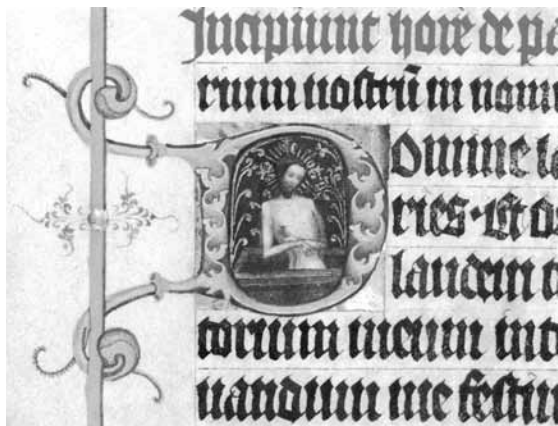 Incipiunt hore de pa
rium nostrū in nomi
Domine la
ries · Et d
laudem t
torium meum int
uandum me festin